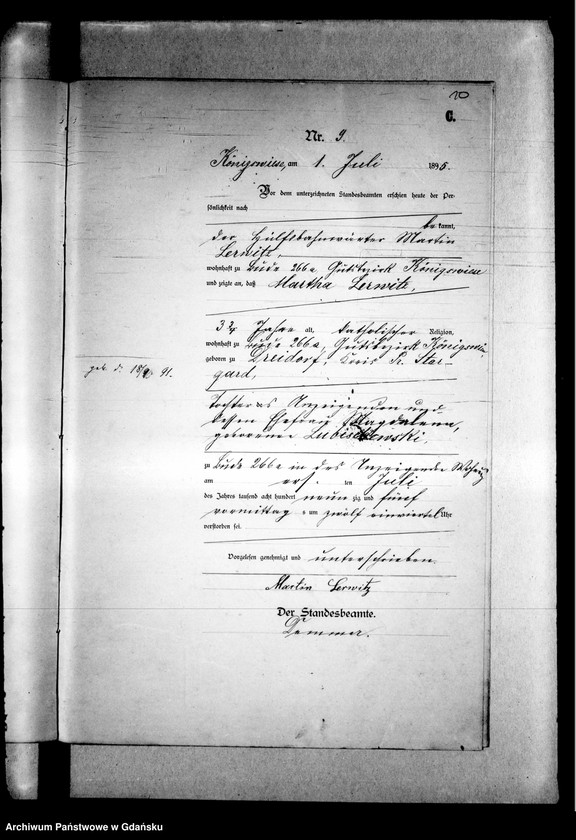 10
C.
Nr. 9.
Königswiese, am 1. Juli 1895.
Vor dem unterzeichneten Standesbeamten erschien heute der Per-
sönlichkeit nach
be kannt,
der Hülfsbahnwärter Martin
Lerwitz,
wohnhaft zu Bude 266a Gutsbezirk Königswiese
und zeigte an, daß Martha Lerwitz,
3 3/4 Jahre alt, katholischer Religion,
wohnhaft zu Bude 266a, Gutsbezirk Königswiese,
geboren zu Dreidorf, Kreis Pr. Star-
gard,
geb. d. 91.
Tochter des Anzeigenden und
dessen Ehefrau Magdalena,
geborenen
zu Bude 266a in des Anzeigenden Wohnung
am ersten Juli
des Jahres tausend acht hundert neun zig und fünf
vormittag s um zwölf einviertel Uhr
verstorben sei.
Vorgelesen genehmigt und unterschrieben
Martin Lerwitz
Der Standesbeamte.
Archiwum Państwowe w Gdańsku